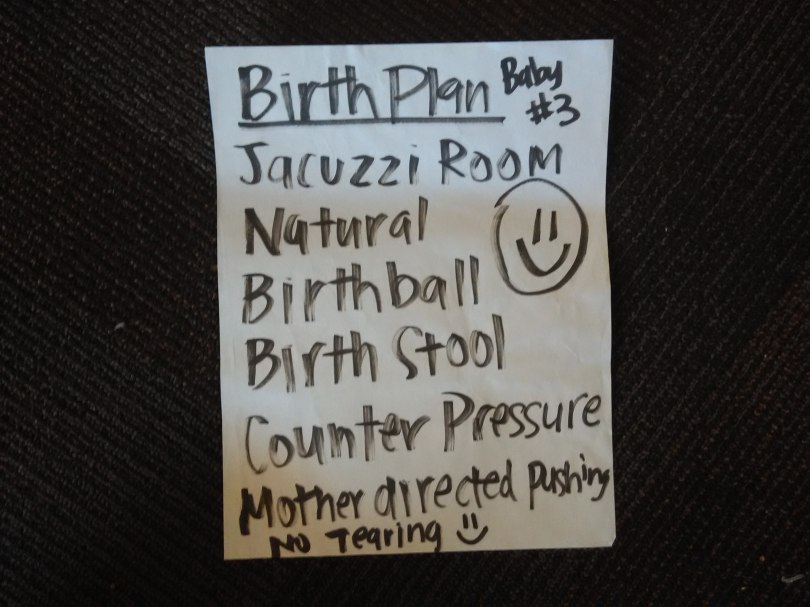 Birth Plan Baby #3
Jacuzzi Room
Natural
Birthball
Birth Stool
Counter Pressure
Mother directed Pushing
No Tearing